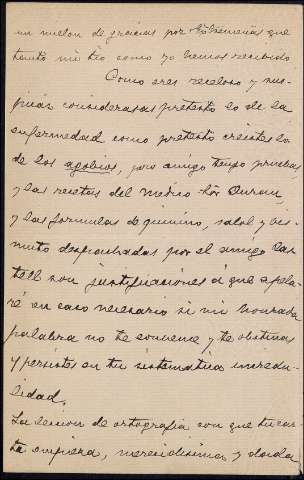 un millon de gracias por las temeñas que
tanto mi tio como yo hemos recibido.
Como eres receloso y sus-
picás considerasas pretexto lo de la
enfermedad como pretexto creiste lo
de los agobios, pero amigo tengo pruebas
y las recetas del médico Sor Duran
y las formulas de quinino, salol y bis-
muto despachadas por el amigo Cas-
tell son justificaciones á que apela-
ré en caso necesario si mi honrada
palabra no te convence y te obstinas
y persistes en tu sistematica incredu-
lidad.
La leccion de ortografia con que tu car-
ta empieza, merecidisima y dada